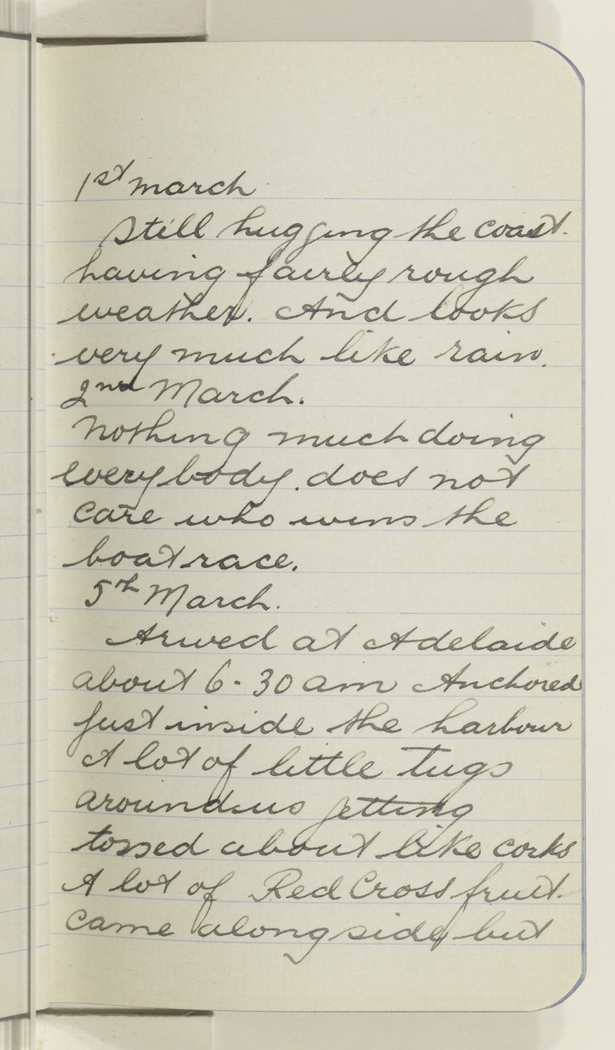 1st march
Still hugging the coast.
having fairly rough
weather. And looks
very much like rain.
2nd March.
Nothing much doing
everybody. does not
care who wins the
boatrace.
5th March.
Arived at Adelaide
about 6-30 am Anchored
just inside the harbour
A lot of little tugs
around us getting
tossed about like corks
A lot of Red Cross fruit.
came alongside but